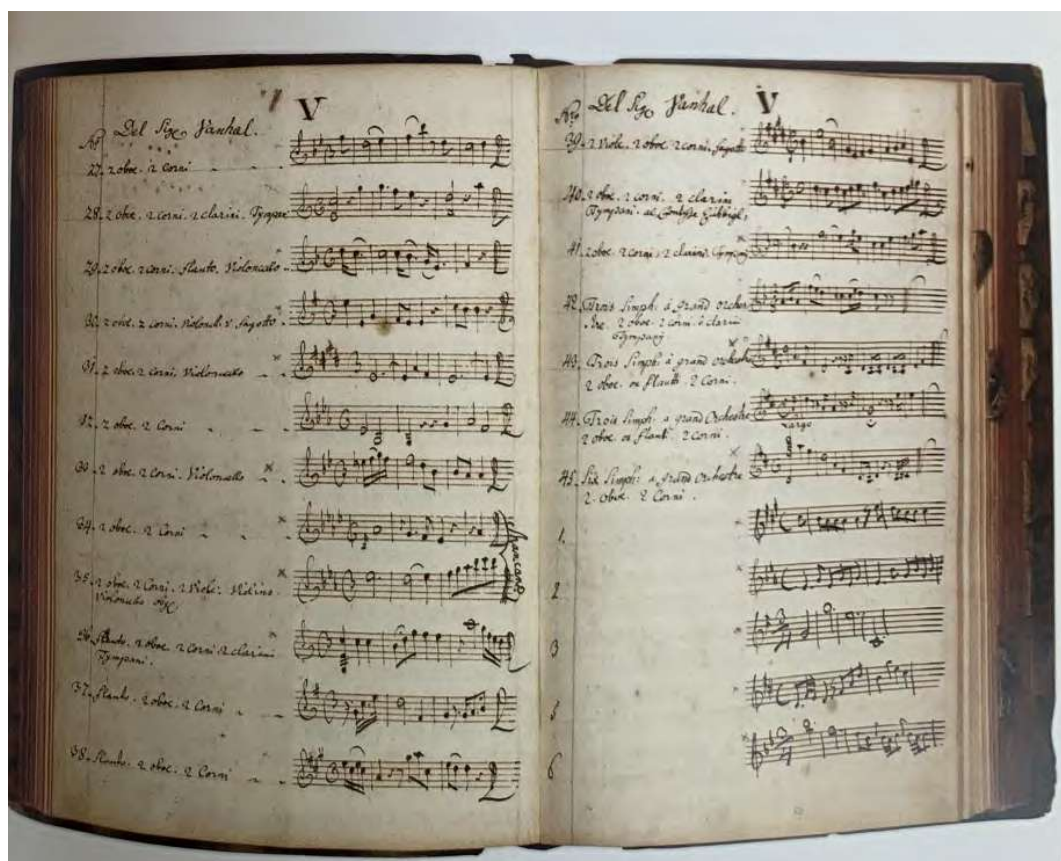 V
Del Sigr Vanhal.
No
27. 2 oboe. 2 Corni
28. 2 oboe. 2 corni. 2 clarini. Tympan
29. 2 oboe. 2 corni. flauto. Violoncello
30. 2 oboe. 2 corni. Violoncel. e fagotto
31. 2 oboe. 2 corni. Violoncello
32. 2 oboe. 2 Corni
33. 2 oboe. 2 corni. Violoncello
34. 2 oboe. 2 Corni
mancano
35. 2 oboe. 2 Corni. 2 Viole. Violino
Violoncello
36. flauto. 2 oboe. 2 corni 2 clarini
Tympani.
37. flauto. 2 oboe. 2 Corni
38. flauto. 2 oboe. 2 Corni
V
Del Sigr Vanhal.
Nro
39. 2 Viole. 2 oboe. 2 corni. fagotto
40. 2 oboe. 2 corni. 2 clarini
Tympani.
41. 2 oboe. 2 corni. 2 clarini. Tympani
42. Trois Simph: à grand orche
stre. 2 oboe. 2 corni. 2 clarini
Tympani
43. Trois Simph: à grand orchestre
2 oboe. ou flauti. 2 Corni.
44. Trois Simph: à grand Orchestre
2 oboe. ou flauti. 2 corni.
Largo
45. Six Simph: à grand Orchestre
2. oboe. 2 Corni.
1.
2
3
5
6